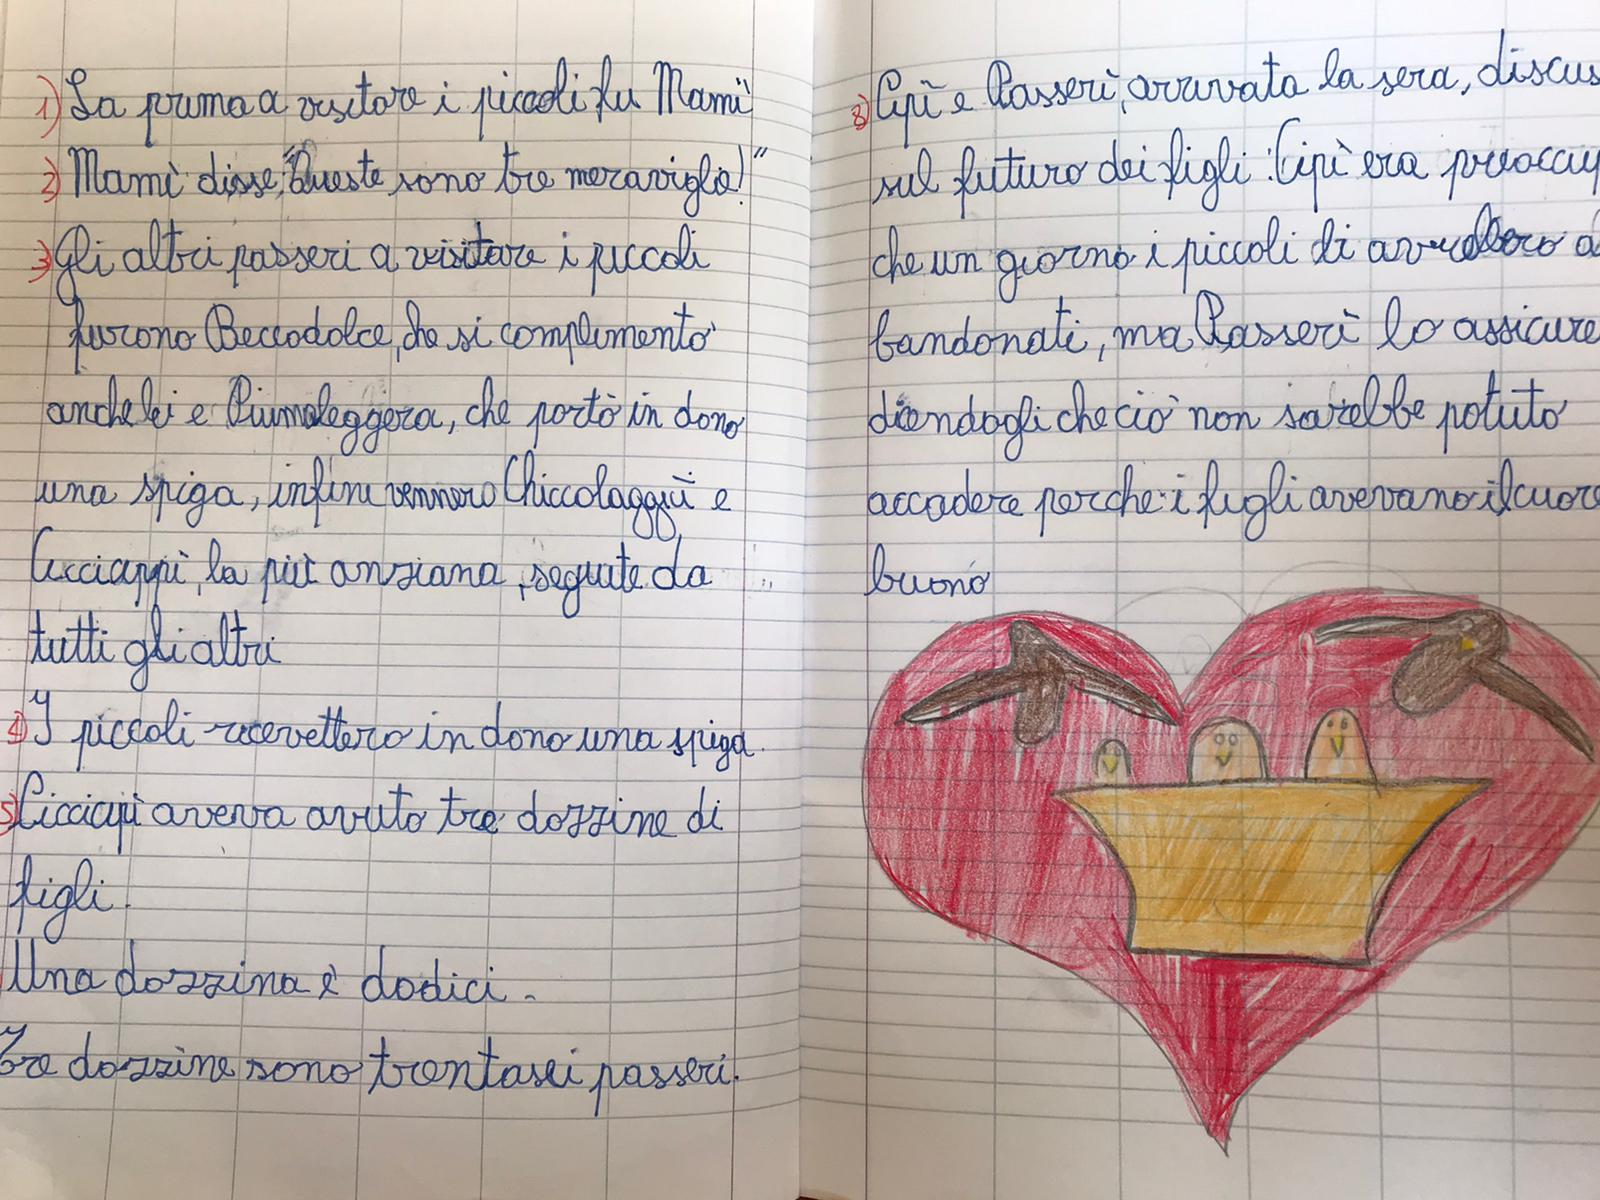 1) La prima a visitare i piccoli fu Mamì
2) Mamì disse, "Queste sono tre meraviglie!"
3) Gli altri passeri a visitare i piccoli
furono Beccodolce, che si complimentò
anche lei e Piumaleggera, che portò in dono
una spiga, infine vennero Chiccolaggiù e
Cicciappì, la più anziana, seguite da
tutti gli altri
4) I piccoli ricevettero in dono una spiga.
5) Cicciapì aveva avuto tre dozzine di
figli.
Una dozzina è dodici.
Tre dozzine sono trentasei passeri.
8) Cipì e Passerì, arrivata la sera, discus
sul futuro dei figli: Cipì era preoccup
che un giorno i piccoli li avrebbero a
bandonati, ma Passerì lo assicure
dicendogli che ciò non sarebbe potuto
accadere perchè i figli avevano il cuore
buono